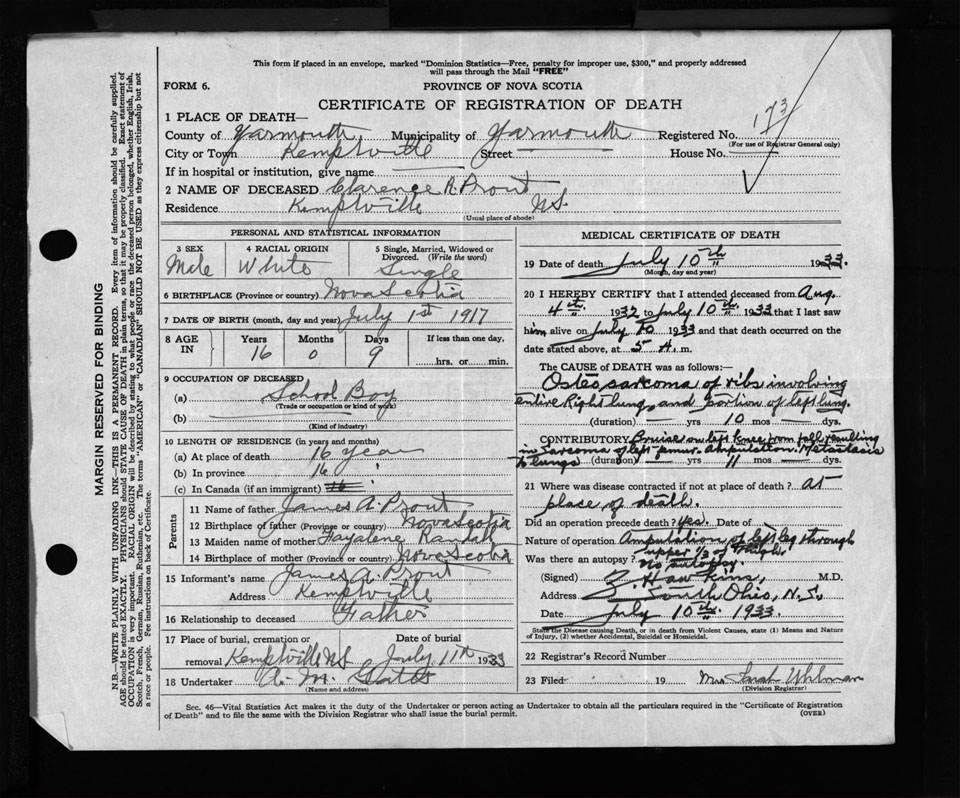 This form if placed in an envelope, marked "Dominion Statistics—Free, penalty for improper use, $300," and properly addressed
will pass through the Mail "FREE"
FORM 6. PROVINCE OF NOVA SCOTIA
CERTIFICATE OF REGISTRATION OF DEATH
173
1 PLACE OF DEATH—
County of Yarmouth Municipality of Yarmouth Registered No.
(For use of Registrar General only)
City or Town Kemptville Street House No.
If in hospital or institution, give name
2 NAME OF DECEASED Clarence R. Prout
Residence Kemptville N.S.
(Usual place of abode)
PERSONAL AND STATISTICAL INFORMATION
3 SEX 4 RACIAL ORIGIN 5 Single, Married, Widowed or
Divorced. (Write the word)
Male White Single
6 BIRTHPLACE (Province or country) Nova Scotia
7 DATE OF BIRTH (month, day and year) July 1st 1917
8 AGE IN Years Months Days If less than one day,
16 0 9 hrs. or min.
9 OCCUPATION OF DECEASED
(a) School Boy
(Trade or occupation or kind of work)
(b)
(Kind of industry)
10 LENGTH OF RESIDENCE (in years and months)
(a) At place of death 16 years
(b) In province 16
(c) In Canada (if an immigrant) 16
Parents
11 Name of father James A. Prout
12 Birthplace of father (Province or country) Nova Scotia
13 Maiden name of mother Randall
14 Birthplace of mother (Province or country) Nova Scotia
15 Informant's name James A. Prout
Address Kemptville
16 Relationship to deceased Father
17 Place of burial, cremation or Date of burial
removal Kemptville N.S. July 11th 1933
18 Undertaker A. M.
(Name and address)
MEDICAL CERTIFICATE OF DEATH
19 Date of death July 10th 1933.
(Month, day and year)
20 I HEREBY CERTIFY that I attended deceased from Aug.
4th 1932 to July 10th 1933 that I last saw
him alive on July 10 1933 and that death occurred on
date stated above, at 5 A. m.
The CAUSE OF DEATH was as follows:
Osteosarcoma of ribs involving
entire Right lung, and portion of left lung.
(duration) — yrs 10 mos — dys.
CONTRIBUTORY Bruise on left knee from fall resulting
in Sarcoma of left femur. Amputation. Metastasis
to lungs (duration) — yrs 11 mos — dys.
21 Where was disease contracted if not at place of death? at
place of death.
Did an operation precede death? Yes. Date of
Nature of operation Amputation of left leg through
upper 1/3 of thigh
Was there an autopsy? No autopsy.
(Signed) Z. Hawkins, M.D.
Address South Ohio, N.S.
Date July 10th 1933.
State the Disease causing Death, or in death from Violent Causes, state (1) Means and Nature
of Injury, (2) whether Accidental, Suicidal or Homicidal.
22 Registrar's Record Number
23 Filed 19 Mrs Sarah Uhlman
(Division Registrar)
Sec. 46—Vital Statistics Act makes it the duty of the Undertaker or person acting as Undertaker to obtain all the particulars required in the "Certificate of Registration
of Death" and to file the same with the Division Registrar who shall issue the burial permit. (OVER)
MARGIN RESERVED FOR BINDING
N.B.—WRITE PLAINLY WITH UNFADING INK—THIS IS A PERMANENT RECORD. Every item of information should be carefully supplied.
AGE should be stated EXACTLY. PHYSICIANS should STATE CAUSE OF DEATH in plain terms, so that it may be properly classified. Exact statement of
OCCUPATION is very important. RACIAL ORIGIN will be described by stating to what people or race the deceased person belonged, whether English, Irish,
Scotch, French, German, Russian, Ruthenian, etc. The terms "AMERICAN" or "CANADIAN" SHOULD NOT BE USED as they express citizenship but not
a race or people. Fee instructions on back of Certificate.